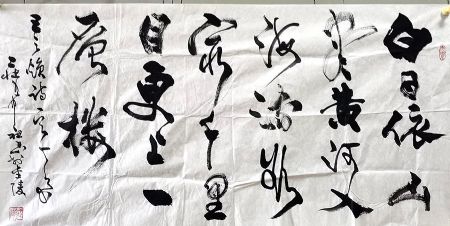 白日依山
尽黄河入
海流欲
穷千里
目更上一
层楼